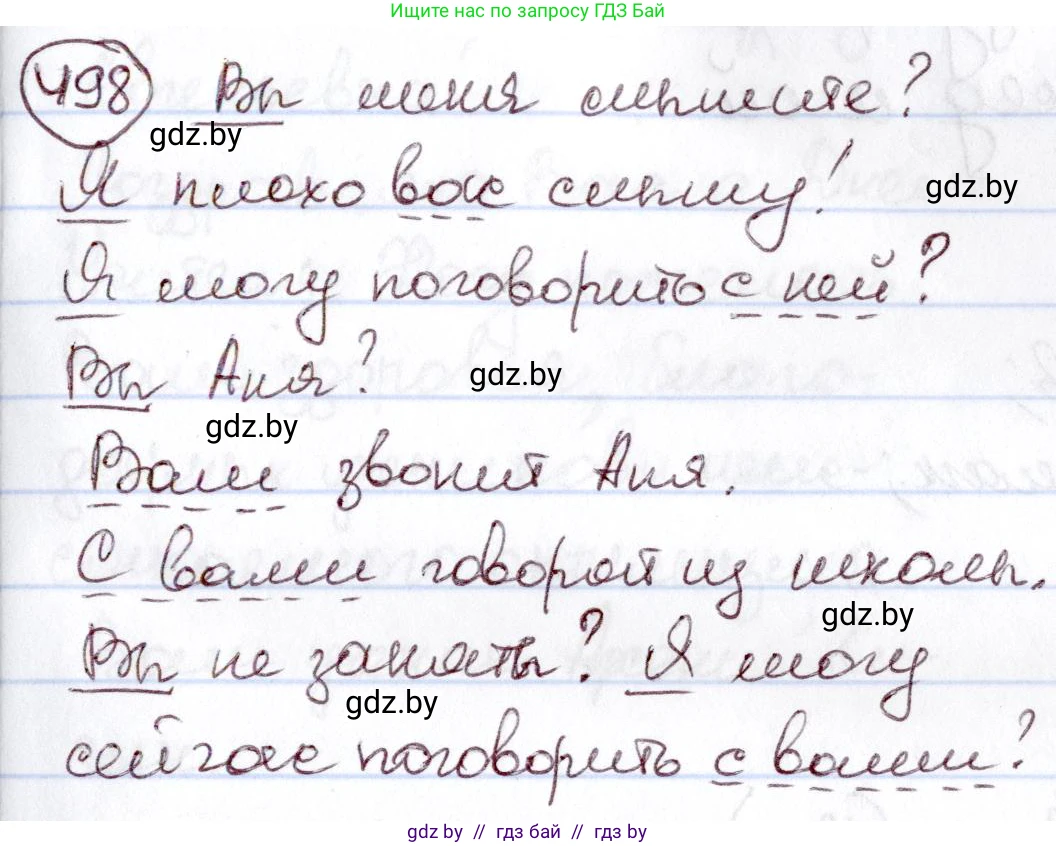 Ищите нас по запросу ГДЗ Бай
498 Вы меня слышите?
gdz.by
Я плохо вас слышу!
gdz.by
Я могу поговорить с ней?
Вы Аня?
gdz.by
gdz.by
Вам звонит Аня.
С вами говорят из школы.
gdz.by
Вы не заняты? Я могу
gdz.by
сейчас поговорить с вами?
gdz.by // гдз бай // гдз by